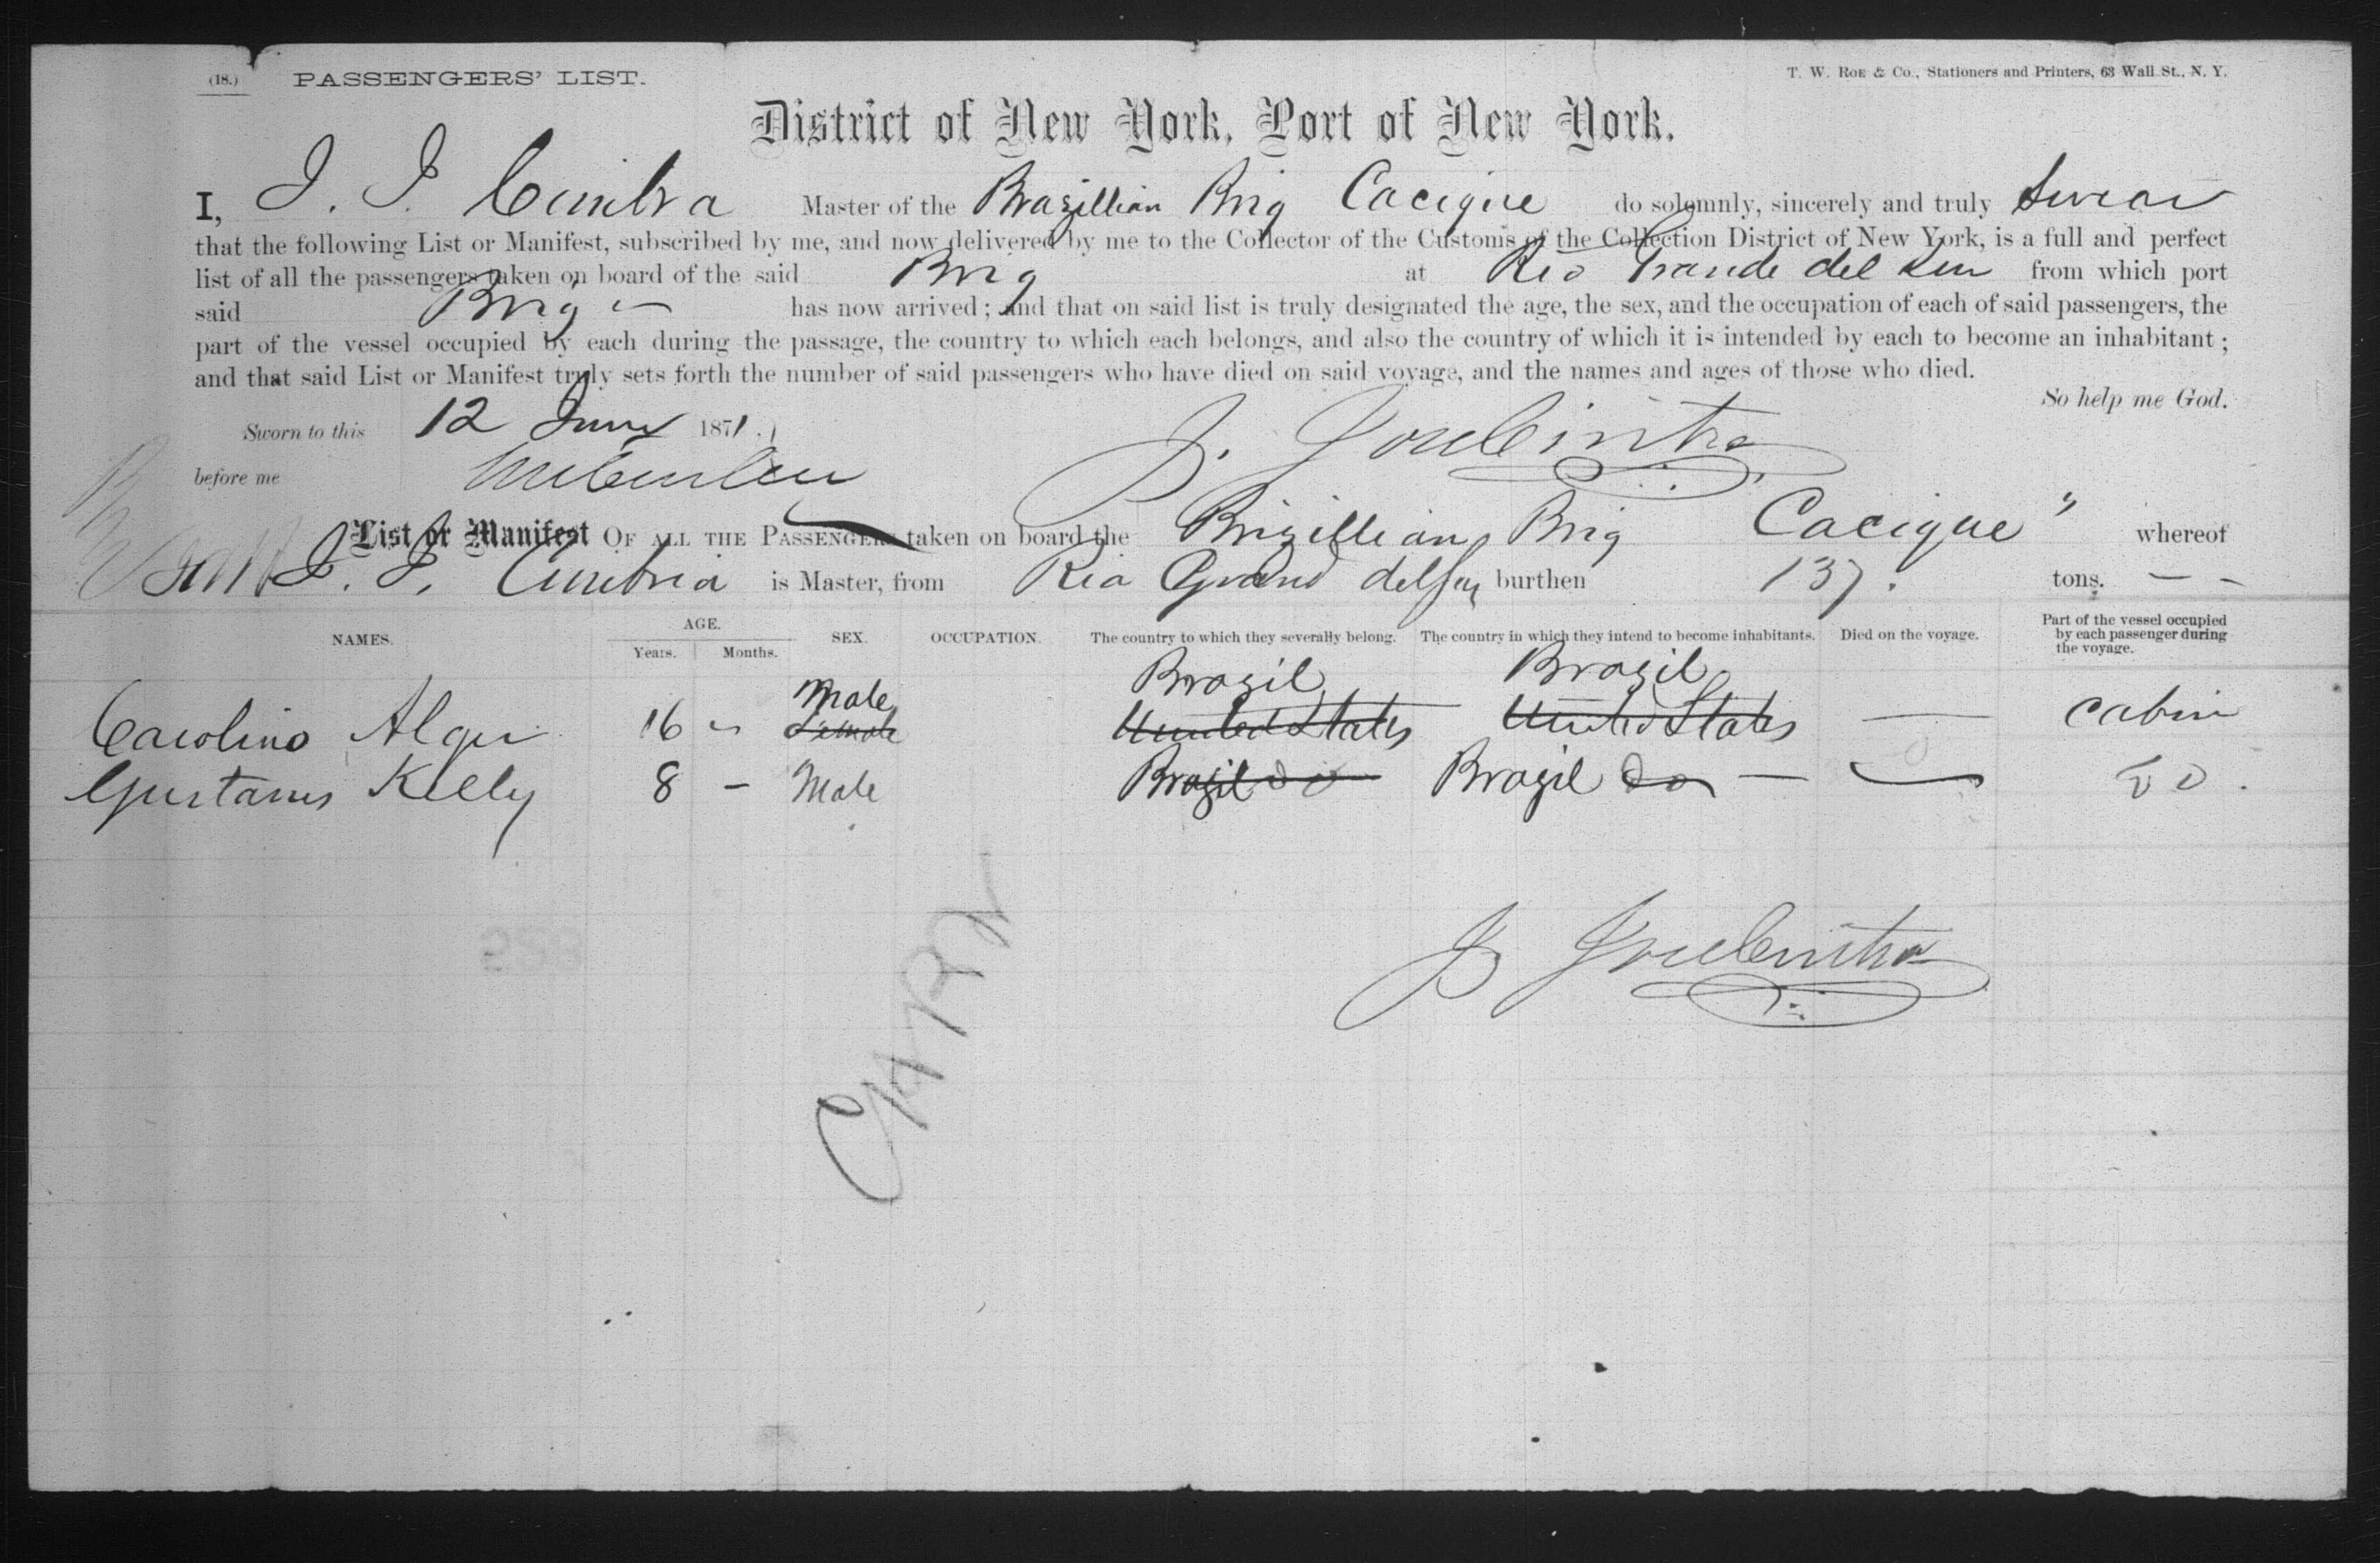 (18.) PASSENGERS' LIST.
T. W. ROE & Co., Stationers and Printers, 63 Wall St., N. Y.
District of New York, Port of New York.
I, J. J. Cunibra Master of the Brazillian Brig Cacique do solemnly, sincerely and truly Swear
that the following List or Manifest, subscribed by me, and now delivered by me to the Collector of the Customs of the Collection District of New York, is a full and perfect
list of all the passengers taken on board of the said Brig at Rio Grande del Sur from which port
said Brig has now arrived; and that on said list is truly designated the age, the sex, and the occupation of each of said passengers, the
part of the vessel occupied by each during the passage, the country to which each belongs, and also the country of which it is intended by each to become an inhabitant;
and that said List or Manifest truly sets forth the number of said passengers who have died on said voyage, and the names and ages of those who died.
So help me God.
Sworn to this 12 June 1871.
before me
List or Manifest OF ALL THE PASSENGERS taken on board the Brizillian Brig Cacique" whereof
J. J. is Master, from Rio Grand del Sur burthen 137. tons. — -
NAMES. AGE. Years. Months. SEX. OCCUPATION. The country to which they severally belong. The country in which they intend to become inhabitants. Died on the voyage. Part of the vessel occupied by each passenger during the voyage.
Male Brazil Brazil
Carolino Alger 16 " Female United States United States — Cabin
Gustavus Kelly 8 - Male Brazil do Brazil do — — do.